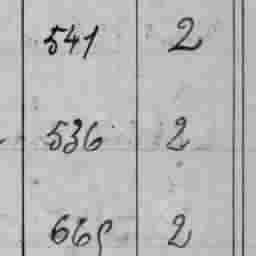 541 2
536 2
665 2